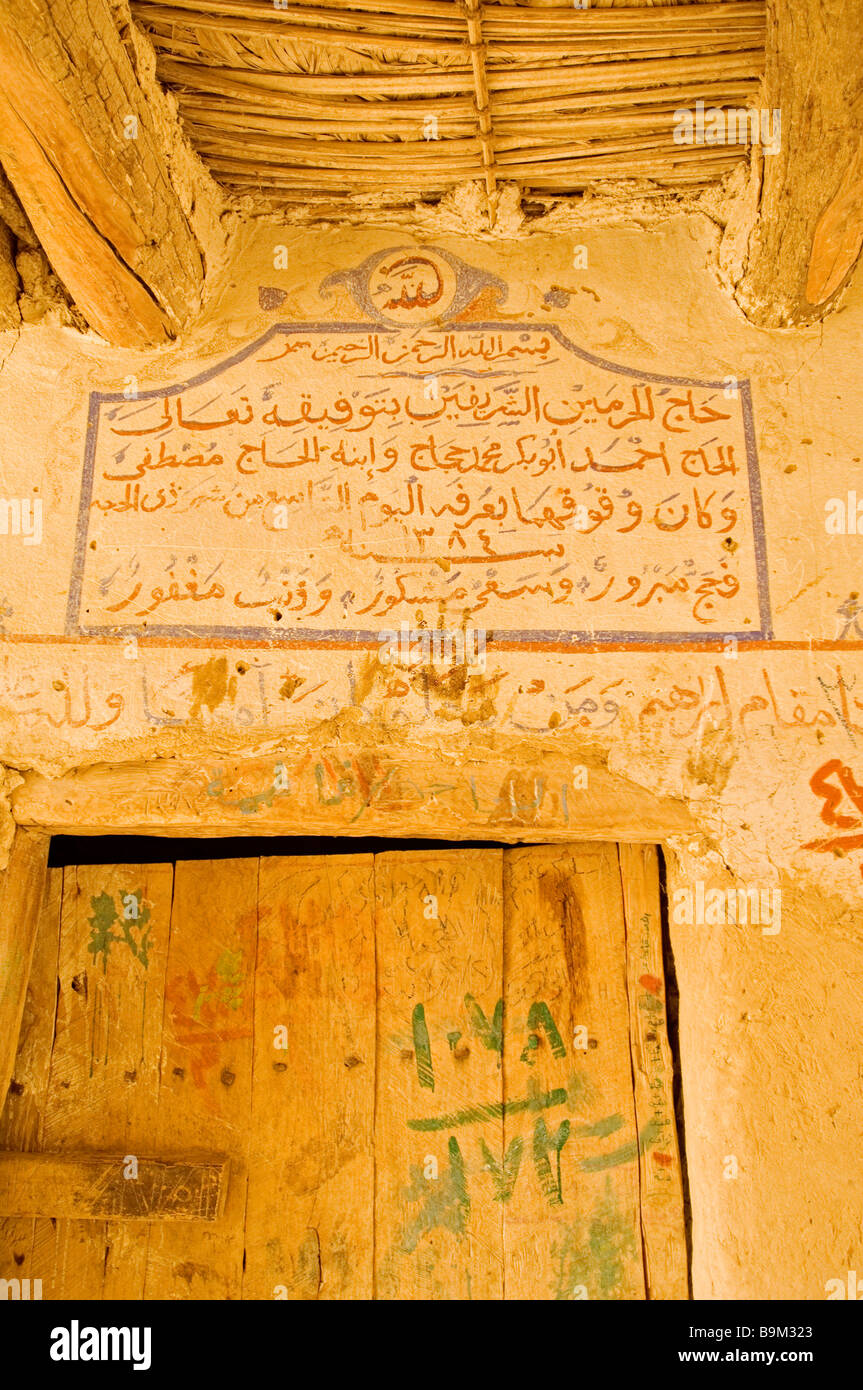 الله
بسم الله الرحمن الرحيم
حاج الحرمين الشريفين بتوفيقه تعالى
الحاج احمد أبو بكر محمد حجاج وابنه الحاج مصطفى
وكان وقوفهما بعرفه اليوم التاسع من شهر ذى الحجه
سنة ١٣٨٤ ه
فحج مبرور وسعى مشكور وذنب مغفور
مقام إبراهيم ومن دخله كان آمنا ولله
٤
١٠٧٨
١٧٢
alamy
B9M323
www.alamy.com